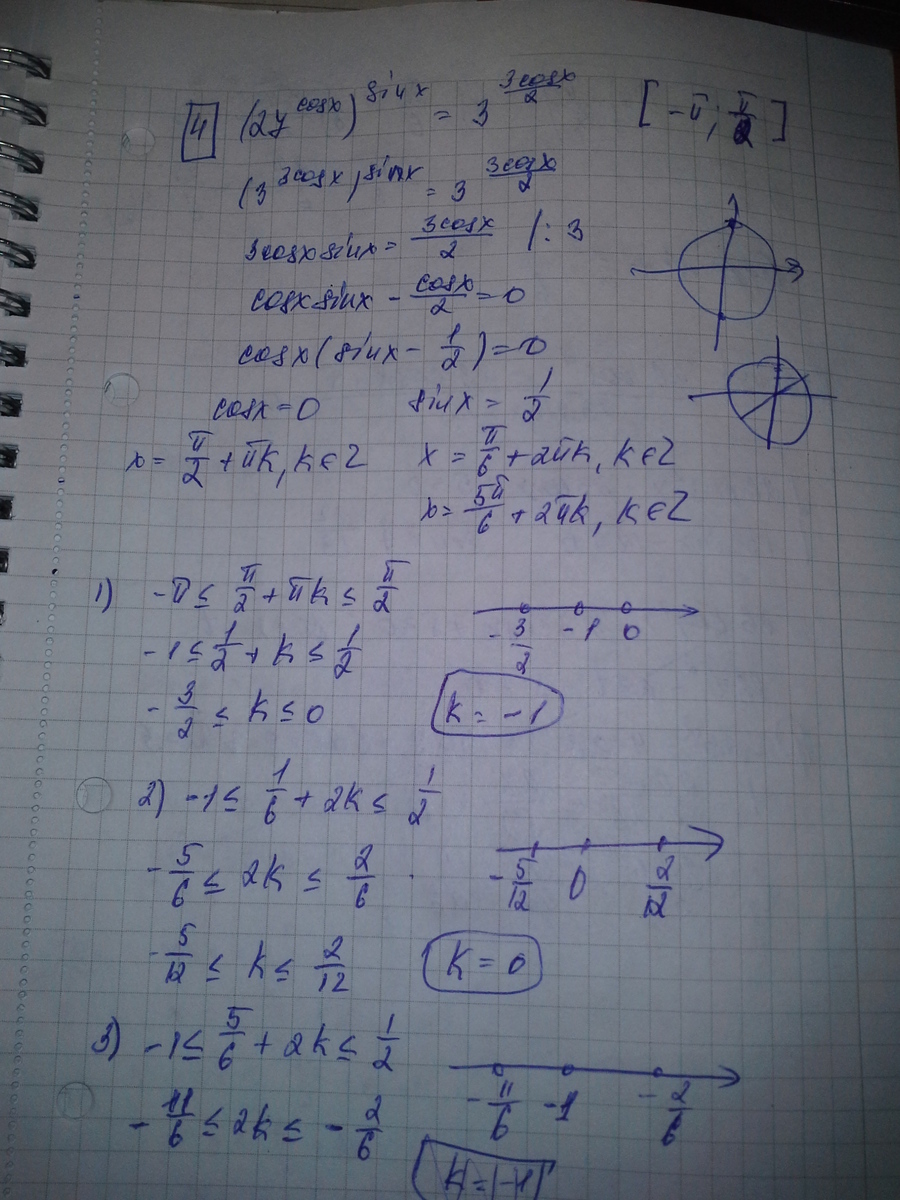 4 (27^cosx)^sinx = 3^(3cosx/2) [-π; π/2]
(3^3cosx)^sinx = 3^(3cosx/2)
3cosxsinx = 3cosx/2 |: 3
cosxsinx - cosx/2 = 0
cosx(sinx - 1/2) = 0
cosx = 0 sinx = 1/2
x = π/2 + πk, k∈Z x = π/6 + 2πk, k∈Z
x = 5π/6 + 2πk, k∈Z
1) -π ≤ π/2 + πk ≤ π/2
-3/2 -1 0
-1 ≤ 1/2 + k ≤ 1/2
-3/2 ≤ k ≤ 0 k = -1
2) -1 ≤ 1/6 + 2k ≤ 1/2
-5/6 ≤ 2k ≤ 2/6 -5/12 0 2/12
-5/12 ≤ k ≤ 2/12 k = 0
3) -1 ≤ 5/6 + 2k ≤ 1/2
-11/6 ≤ 2k ≤ -2/6 -11/6 -1 -2/6